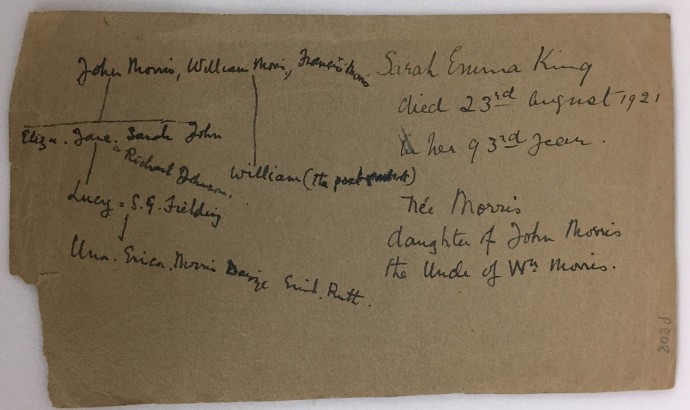 John Morris, William Morris, Francis Morris
Eliza. Jane. Sarah John
= Richard Johnson.
William (the poet
Lucy = S.G. Fielding
Una. Erica. Morris Enid. Ruth.
Sarah Emma King
died 23rd August 1921
in her 93rd year.
Née Morris
daughter of John Morris
the Uncle of Wm Morris.